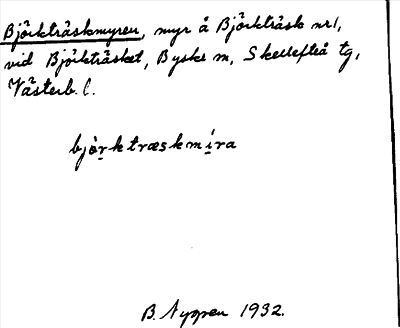 Björkträskmyren, myr å Björkträsk nr 1,
vid Björkträsket, Byske sn, Skellefteå tg,
Västerb. l.
bjòrktræskmíra
B. Nygren 1932.